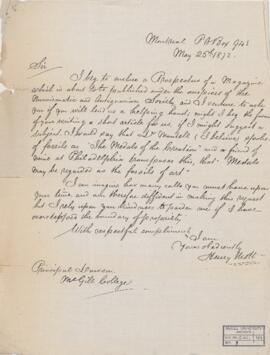 Montreal P.O. Box 941
May 25th 1872
Sir
I beg to enclose a Prospectus of a Magazine
which is about to be published under the auspices of the
Numismatic and Antiquarian Society, and I venture to ask
you if you will lend us a helping hand; might I beg the favor
of your writing a short article for us, if I might suggest a
subject I would say that Dr Mantell (I believe) speaks
of fossils as "The Medals of the Creation" and a friend of
mine at Philadelphia transposes this, that "Medals
may be regarded as the fossils of art"
I can imagine how many calls you must have upon
your time and am therefore diffident in making this request
but I rely upon your kindness to pardon me if I have
overstepped the boundary of propriety.
With respectful compliments
I am
Yours obediently
Henry Mott
Principal Dawson
McGill College
McGILL UNIVERSITY
ARCHIVES